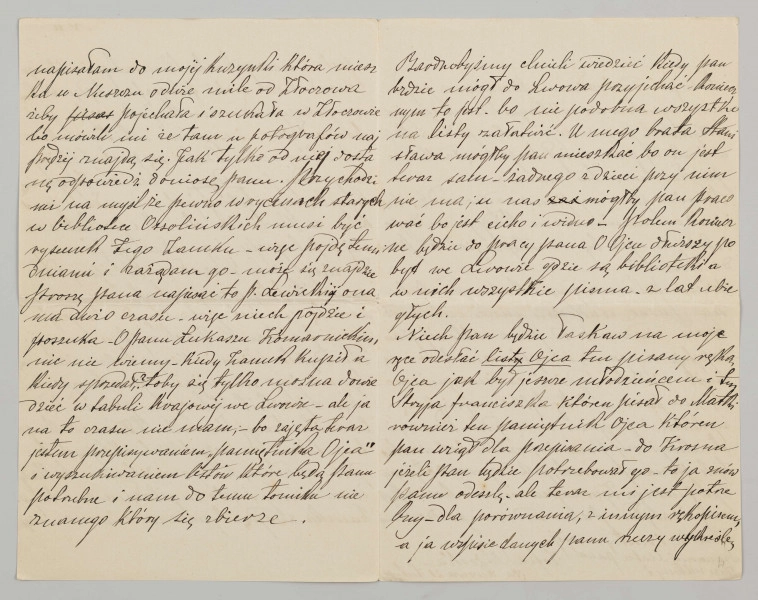 napisałam do mojéj kuzynki która miesz
ka w Meszu odwie mile od Złoczowa
żeby pojechała i szukała w Złoczowie
bo mówili mi że tam u fotografów naj
prędzej znajdą się. Jak tylko od niéj dosta
nę odpowiedź doniosę panu. Przychodzi
mi na myśl że pewno w rycinach starych
w bibliotece Ossolińskich musi być
rysunek tego Zamku – więc pójdę temi
dniami i zażądam go – może się znajdzie
Proszę pana napisać to p. Lewickiéj ona
ma dużo czasu – więc niech pójdzie i
poszuka – O panu Łukaszu Komarnickim
nic nie wiemy – Kiedy Zamek kupił a
kiedy sprzedał? toby się tylko można dowie
dzieć w tabuli Krajowéj we Lwowie – ale ja
na to czasu nie mam; – bo zajęta teraz
jestem przepisywaniem „pamiętnika Ojca"
i wyszukiwaniem listów które będą panu
potrzebne i nam do temu tomiku nie
znanego który się zbierze.
Bardzobyśmy chcieli wiedzieć kiedy pan
będzie mógł do Lwowa przyjechać. Koniecz
nym to jest. bo nie podobna wszystko
na listy załatwić. U mego brata Stani
sława mógłby pan mieszkać bo on jest
teraz sam – żadnego z dzieci przy nim
nie ma, u nas mógłby pan praco
wać bo jest cicho i widno – Potem Koniecz
ne będzie do pracy pana O Ojcu dłuższy po
byt we Lwowie gdzie są biblioteki a
w nich wszystkie pisma – z lat ubie
głych.
Niech pan będzie łaskaw na moje
ręce odesłać listy Ojca ten pisany ręką
Ojca jak był jeszcze młodzieńcem i
Stryja Franciszka któren pisał do Matki
również ten pamiętnik Ojca któren
pan wziął dla przepisania – do Krosna
jeżeli pan będzie potrzebował go – to ja znów
panu odeszlę – ale teraz mi jest potrze
bny – dla porównania, z innym rękopisem,
a ja w spisie danych panu rzeczy wykreślę